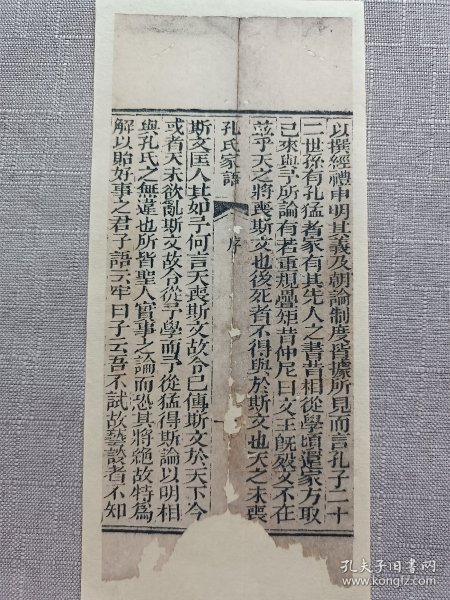 以撰經禮申明其義及朝論制度皆據所見而言孔子二十
二世孫有孔猛者家有其先人之書昔相從學頃還家方取
已來與予所論有若重規疊矩昔仲尼曰文王既殁文不在
茲乎天之將喪斯文也後死者不得與於斯文也天之未喪
孔氏家語 序
斯文匡人其如予何言天喪斯文故令已傳斯文於天下今
或者天未欲亂斯文故令從予學而予從猛得斯論以明相
與孔氏之無違也所皆聖人實事之論而恐其將絕故特爲
解以貽好事之君子語云牢曰子云吾不試故藝談者不知
孔夫子旧书网
kongfz.com